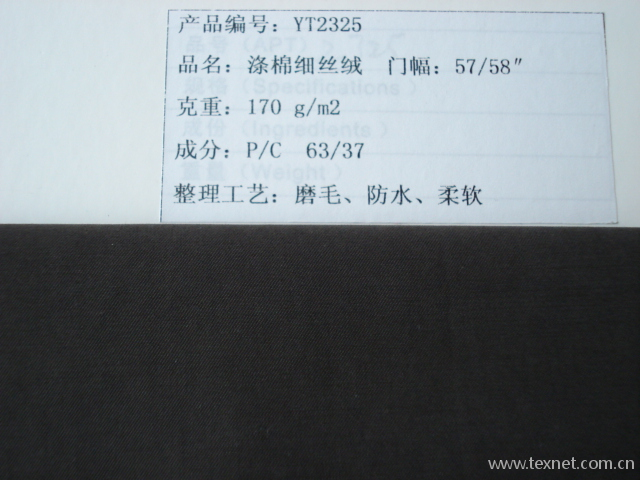 产品编号: YT2325
品名: 涤棉细丝绒 门幅: 57/58"
克重: 170 g/m2
成分: P/C 63/37
整理工艺: 磨毛、防水、柔软
www.texnet.com.cn